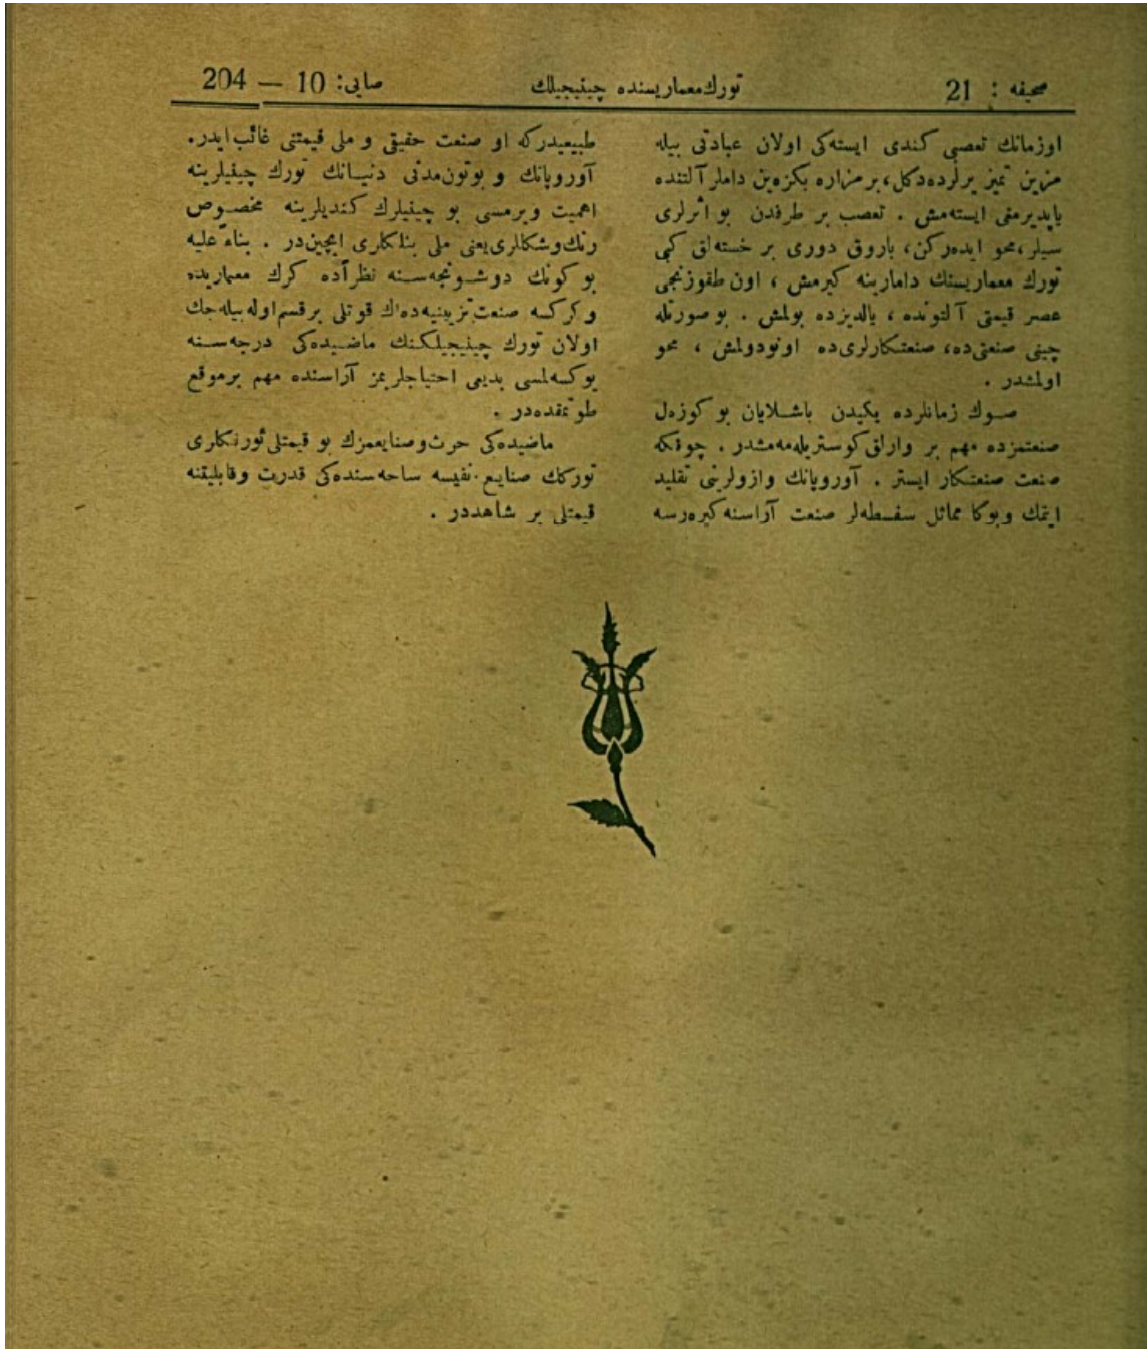 صحیفه : 21
تورك معماریسنده چینیجیلك
صایی: 10 — 204
اوزمانك تعصبی كندی ایسته‌كی اولان عبادتی بیله
مزین تمیز یرلرده‌دكل، بر مزاره بكزه‌ین داملر آلتنده
یاپدیرمتی ایسته‌مش . تعصب بر طرفدن بو اثرلری
سیلر، محو ایده‌ركن، باروق دوری بر خسته‌لق كبی
تورك معماریسنك دامارینه كیرمش ، اون طقوزنجی
عصر قیمتی آلتونده ، یالدیزده بولمش . بو صورتله
چینی صنعتی‌ده، صنعتكارلری‌ده اونودولمش ، محو
اولمشدر .
صوك زمانلرده یكیدن باشلایان بو كوزه‌ل
صنعتمزده مهم بر وارلق كوستریله‌مه‌مشدر . چونكه
صنعت صنعتكار ایستر . آوروپانك وازولرینی تقلید
ایتمك وبوكا مماثل سفسطه‌لر صنعت آراسنه كیره‌رسه
طبیعیدركه او صنعت حقیقی و ملی قیمتنی غائب ایدر.
آوروپانك و بوتون‌مدنی دنیانك تورك چینیلرینه
اهمیت ویرمسی بو چینیلرك كندیلرینه مخصوص
رنك‌وشكللری‌یعنی ملی بنلكلری ایچین‌در . بناءً علیه
بو كونك دوشونجه‌سنه نظراً‌ده كرك معماریده
وكركسه صنعت‌تزیینیه‌ده‌اك قوتلی بر قسم‌اوله‌بیله‌جك
اولان تورك چینیجیلكنك ماضیده‌كی درجه‌سنه
یوكسه‌لمسی بدیعی احتیاجلریمز آراسنده مهم برموقع
طوتمقده‌در .
ماضیده‌كی حرث‌وصنایعمزك بو قیمتلی‌ئورنكلری
توركك صنایع نفیسه ساحه‌سنده‌كی قدرت وقابلیتنه
قیمتلی بر شاهددر .